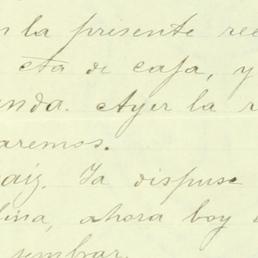 n la presente re
cta de casa, y
nda. Ayer la r
aremos.
aiz. Ya dispuse
lina, ahora boy
sembrar